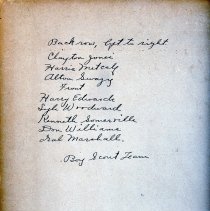 Back row, left to right
Clayton Jones
Harris Metcalf
Alton Swazy
Front
Harry Edwards
Lyle Woodward
Kenneth Somerville
Don Williams
Marshall.
Boy Scout Team